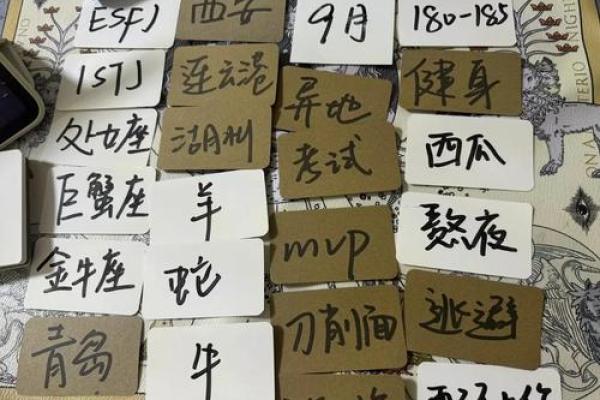 ESFJ
西安
9月
180-185
ISTJ
连云港
异地
健身
处女座
湖州
考试
西瓜
巨蟹座
羊
mvp
熬夜
金牛座
蛇
刀削面
逃避
青岛
牛